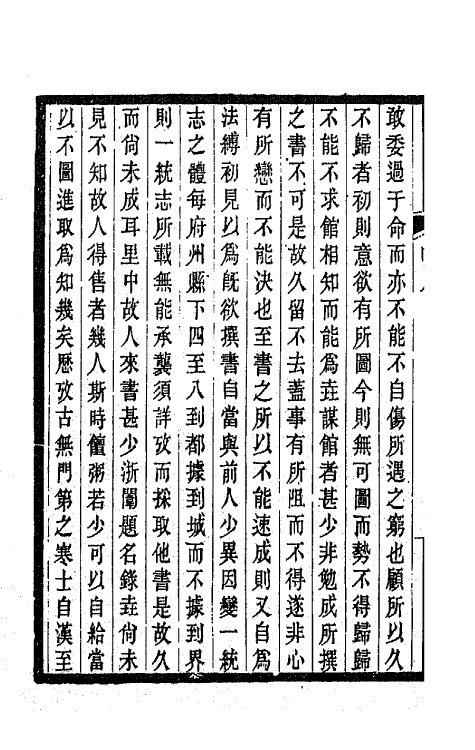 敢委過于命而亦不能不自傷所遇之窮也顧所以久
不歸者初則意欲有所圖今則無可圖而勢不得歸歸
不能不求館相知而能爲垚謀館者甚少非勉成所撰
之書不可是故久留不去蓋事有所阻而不得遂非心
有所戀而不能決也至書之所以不能速成則又自爲
法縛初見以爲旣欲撰書自當與前人少異因變一統
志之體每府州縣下四至八到都據到城而不據到界
則一統志所載無能承襲須詳攷而採取他書是故久
而尙未成耳里中故人來書甚少浙闈題名錄垚尙未
見不知故人得售者幾人斯時饘粥若少可以自給當
以不圖進取爲知幾矣歷攷古無門第之寒士自漢至